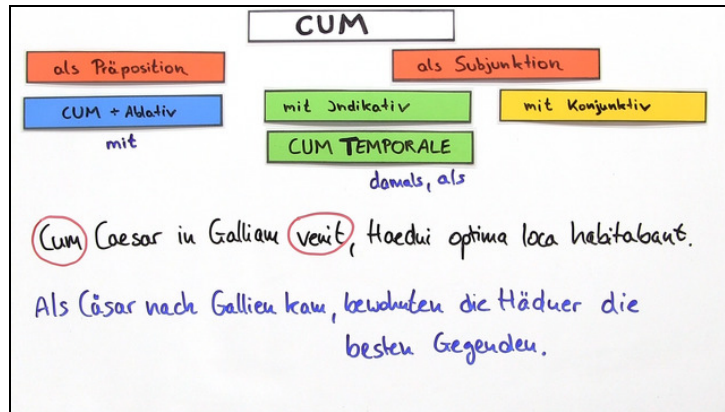 CUM
als Präposition als Subjunktion
CUM + Ablativ mit Indikativ mit Konjunktiv
mit CUM TEMPORALE
damals, als
Cum Caesar in Galliam venit, Haedui optima loca habitabant.
Als Cäsar nach Gallien kam, bewohnten die Häduer die
besten Gegenden.